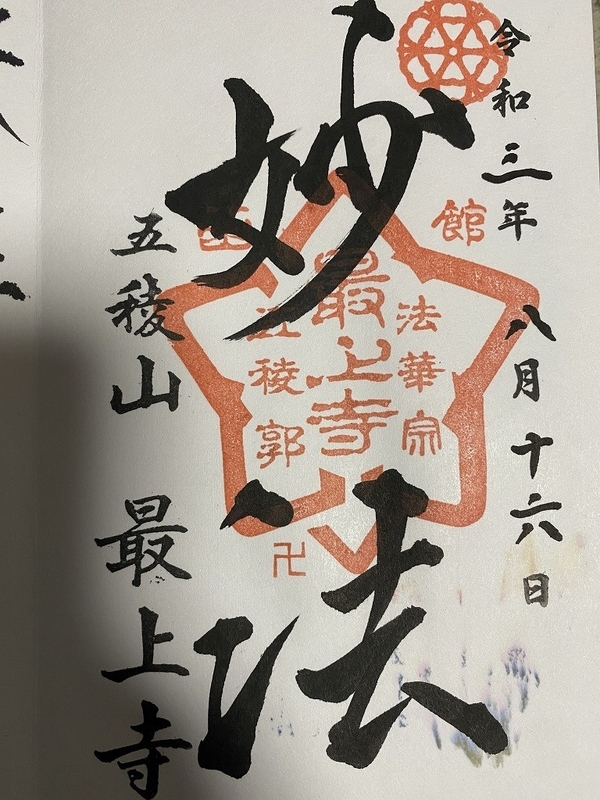 令和三年 八月十六日
妙法
五稜山 最上寺
函館
法華宗
最上寺
五稜郭
卍